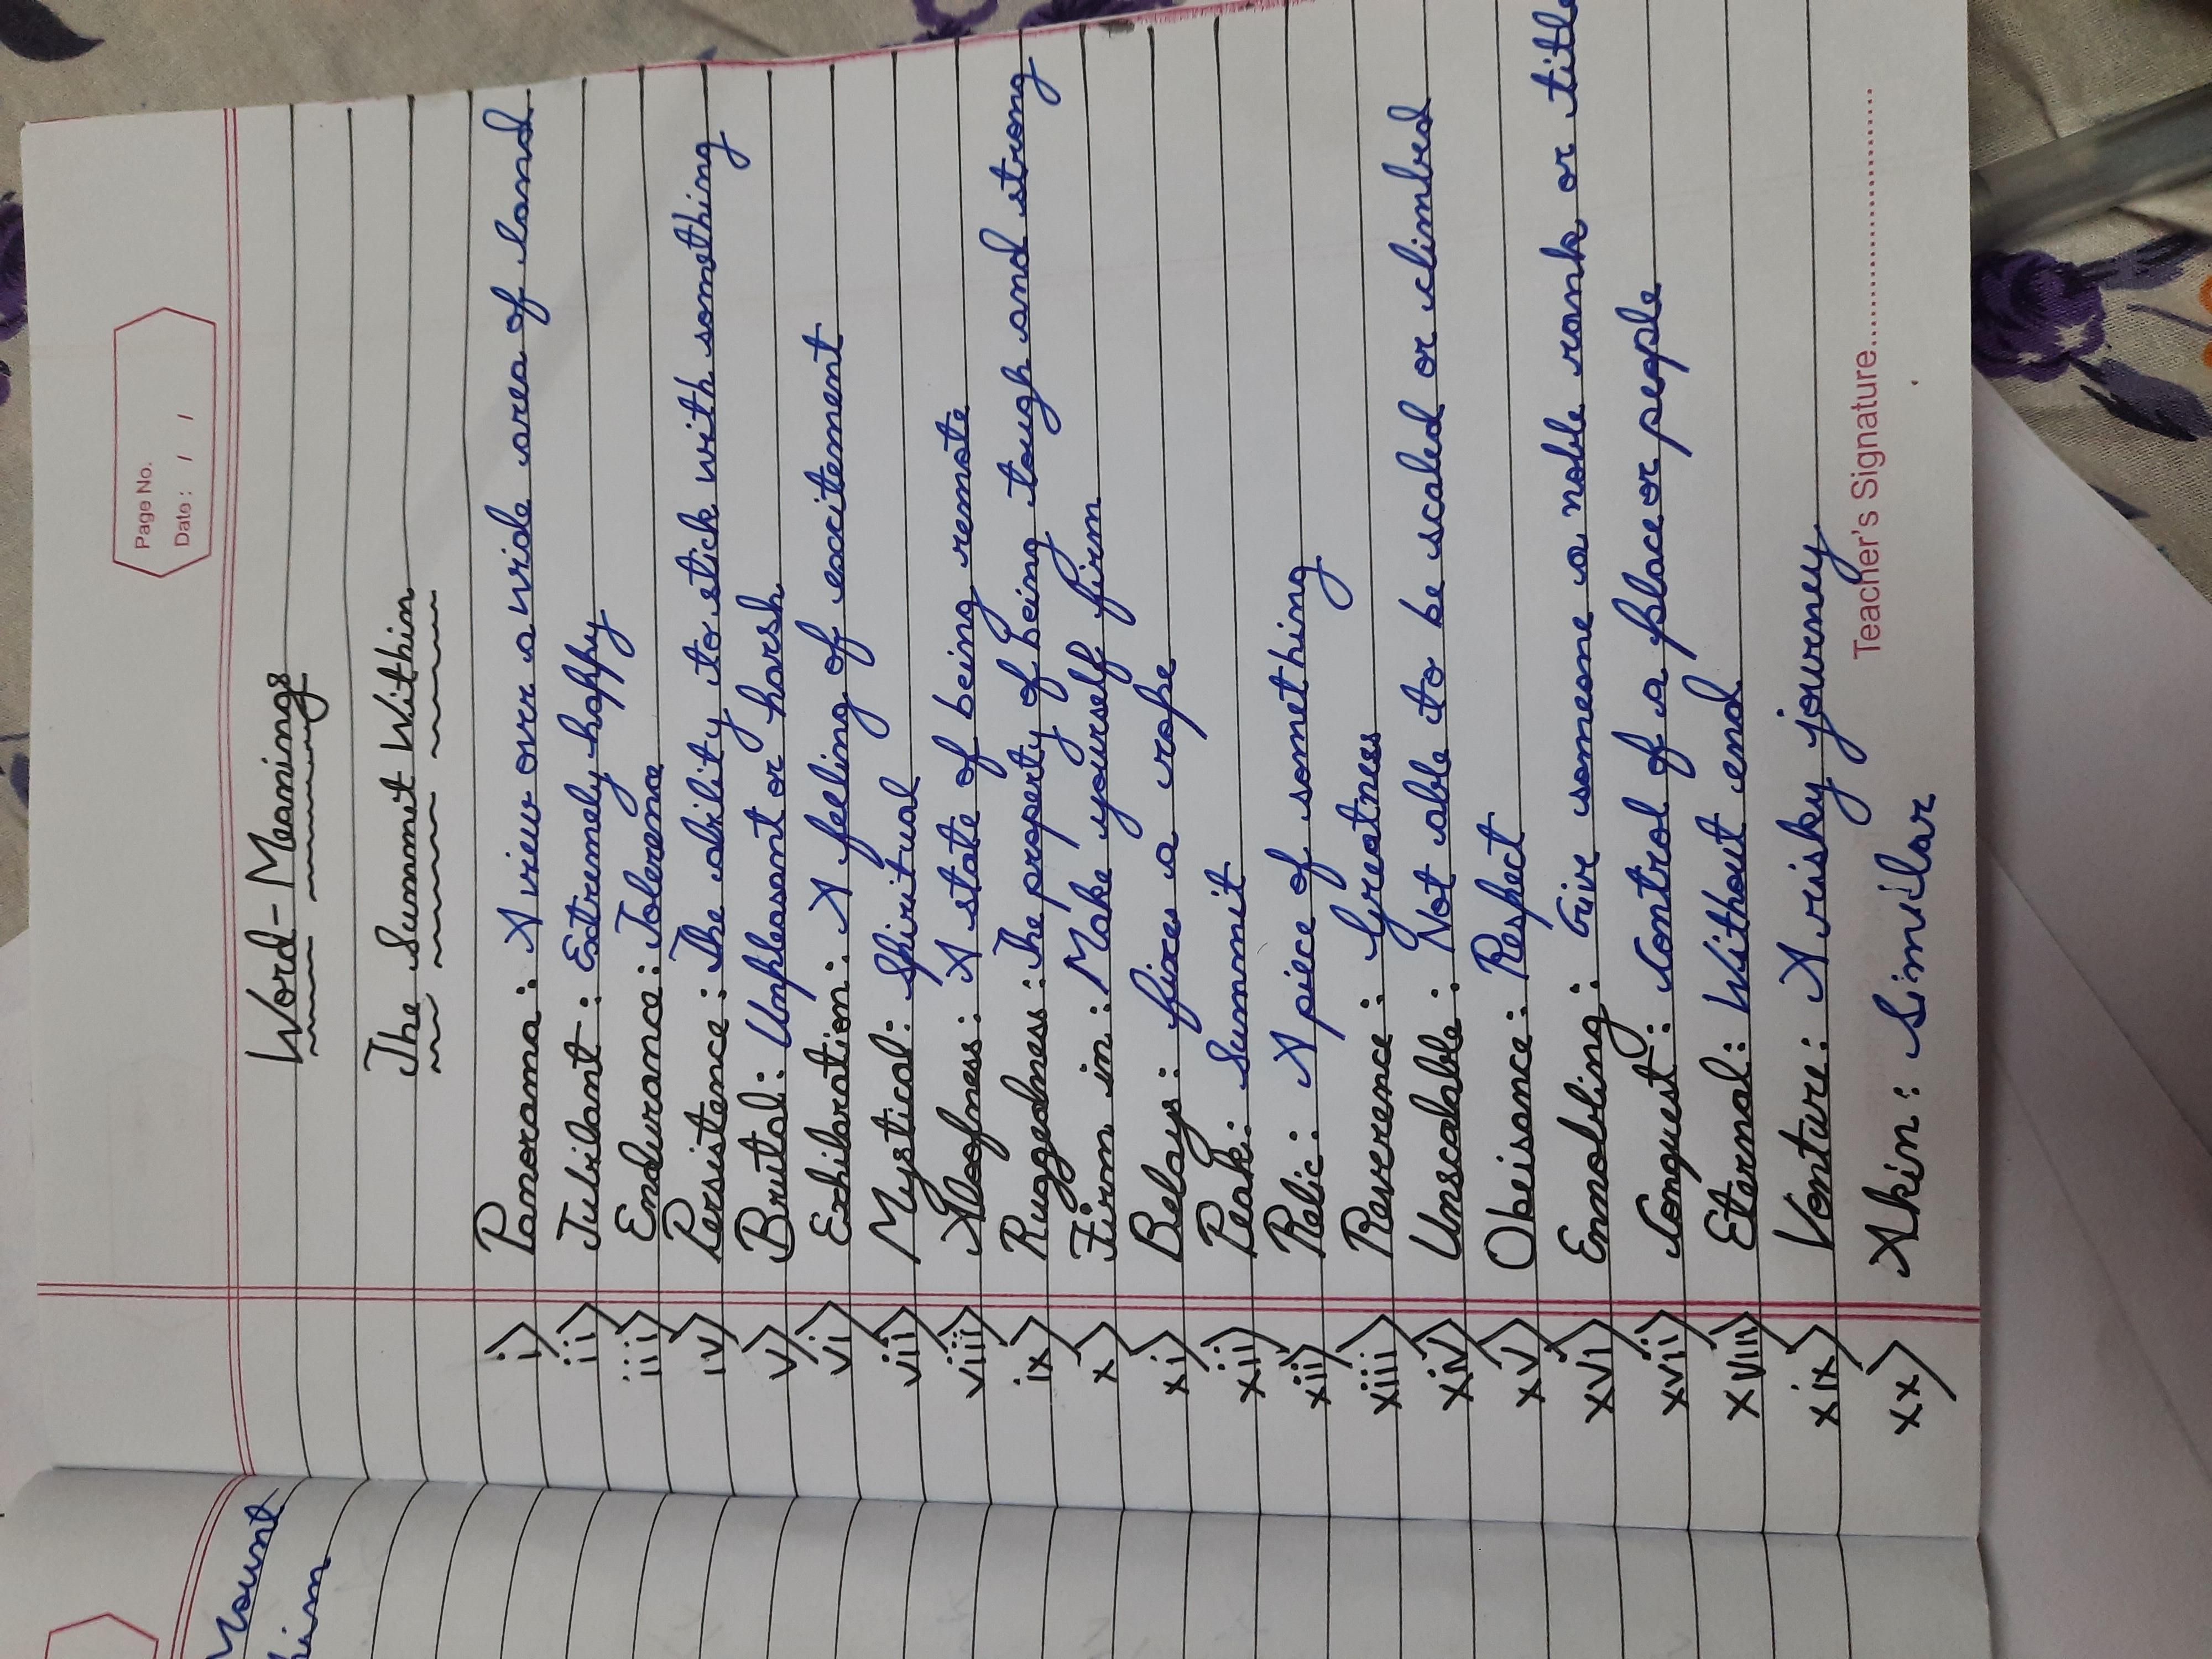 Mount
him
Page No.
Date : / /
Word-Meanings
The Summit Within
i) Panorama : A view over a wide area of land
ii) Jubilant : Extremely happy
iii) Endurance : Tolerence
iv) Persistence : The ability to stick with something
v) Brutal : Unpleasant or harsh
vi) Exhilaration : A feeling of excitement
vii) Mystical : Spiritual
viii) Aloofness : A state of being remote
ix) Ruggedness : The property of being tough and strong
x) Firm in : Make yourself firm
xi) Belays : fixes a rope
xii) Peak : Summit
xii) Relic : A piece of something
xiii) Reverence : Greatness
xiv) Unscalable : Not able to be scaled or climbed
xv) Obeisance : Respect
xvi) Ennobling : Give someone a noble rank or title
xvii) Conquest : Control of a place or people
xviii) Eternal : Without end
xix) Venture : A risky journey
xx) Akin : Similar
Teacher's Signature....................